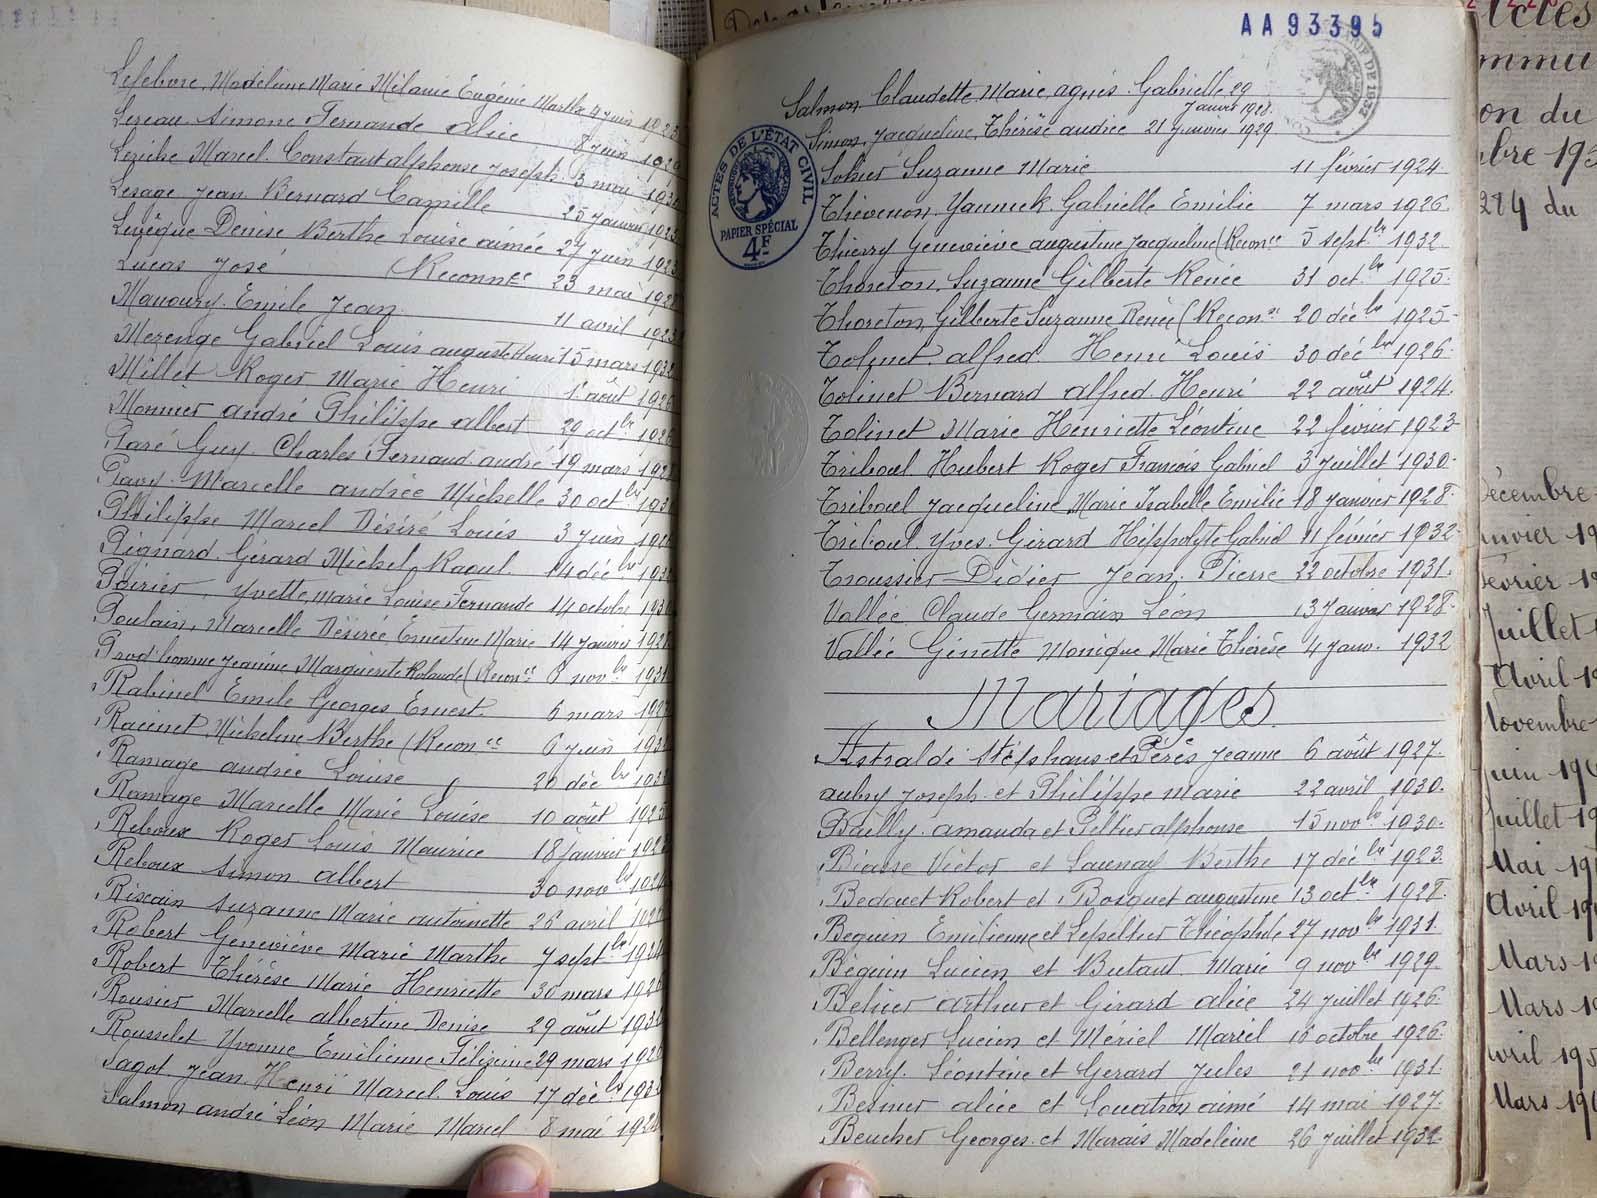 Lefebvre Madeleine Marie Mélanie Eugénie Marthe 9 juin 1923
Simone Fernande alice 8 juin
Marcel Constant alphonse Joseph 3 mai 193
Lesage Jean Bernard Camille 25 Janvier 1923
Levêque Denise Berthe Louise aimée 27 juin 1923
Lucas José (Reconn.ce 23 mai 192
Manoury Emile Jean 11 avril 1923
Merenge Gabriel Louis auguste Henri 15 mars 1932
Millet Roger Marie Henri 1er août 1926
Monnier andré Philippe albert 29 oct.bre 1926
Paré Guy Charles Fernand andré 19 mars 192
Pavy Marcelle andrée Michelle 30 oct.bre 193
Philippe Marcel Désiré Louis 3 juin 192
Pignard Gérard Michel Raoul 14 déc.bre 193
Poirier Yvette marie Louise Fernande 14 octobre 193
Poulain, Marcelle Désirée Ernestine Marie 14 janvier 192
Prod'homme Jeanine Marguerite Rolande (Recon.ce 8 nov.bre 1931
Rabinel Emile Georges Ernest 6 mars 192
Racinet Micheline Berthe (Recon.ce 6 Juin 193
Ramage andrée Louise 20 déc.bre 193
Ramage Marcelle Marie Louise 10 août 1925
Reboux Roger Louis Maurice 18 janvier 192
Reboux Simon albert 30 nov.bre 1924
Suzanne Marie antoinette 26 avril 192
Robert Geneviève Marie Marthe 7 sept.bre 1924
Robert Thérèse Marie Henriette 30 mars 192
Rousier Marcelle albertine Denise 29 août 193
Rousselet Yvonne Emilienne 29 mars 192
Sagot Jean Henri Marcel Louis 17 déc.bre 193
Salmon andré Léon Marie Marcel 8 mai 192
AA93395
Salmon Claudette Marie agnès Gabrielle 29
Janvier 1928
Simon Jacqueline Thérèse andrée 21 janvier 1929
ACTES DE L'ÉTAT CIVIL
PAPIER SPÉCIAL
4F
Sohier Suzanne Marie 11 février 1924
Thévenon Yannick Gabrielle Emilie 7 mars 1926
Thierry Geneviève augustine Jacqueline (Recon.ce 5 sept.bre 1932
Thoreton Suzanne Gilberte Renée 31 oct.bre 1925
Thoreton Gilberte Suzanne Renée (Recon.ce 20 déc.bre 1925
Tolinet alfred Henri Louis 30 déc.bre 1926
Tolinet Bernard alfred Henri 22 août 1924
Tolinet Marie Henriette Léontine 22 février 1923
Triboul Hubert Roger François Gabriel 3 Juillet 1930
Triboul Jacqueline Marie Isabelle Emilie 18 Janvier 1928
Triboul Yves Gérard Hippolyte Gabriel 11 février 1932
Troussier Didier Jean Pierre 22 octobre 1931
Vallée Claude Germain Léon 13 Janvier 1928
Vallée Ginette Monique Marie Thérèse 4 Janv. 1932
Mariages
Astraldi Stéphans et Pérès Jeanne 6 août 1927
aubry Joseph et Philippe marie 22 avril 1930
Bailly amanda et Peltier alphonse 15 nov.bre 1930
Biasse Victor et Launay Berthe 17 déc.bre 1923
Bedouet Robert et Bosquet augustine 13 oct.bre 1928
Beguin Emilienne et Lepeltier Théophile 27 nov.bre 1931
Béguin Lucien et Butaut Marie 9 nov.bre 1929
Belier arthur et Gérard alice 24 Juillet 1926
Bellenger Lucien et Mériel Marcel 16 octobre 1926
Berry Léontine et Gerard Jules 21 nov.bre 1931
Besnier alice et aimé 14 mai 1927
Beucher Georges et Marais Madeleine 26 Juillet 1932
on du
bre 193
284 du
écembre
nvier 19
évrier 19
Juillet 1
Avril 19
Novembre
juin 19
juillet 19
Mai 19
Avril 19
Mars 19
Mars 19
vril 195
Mars 19